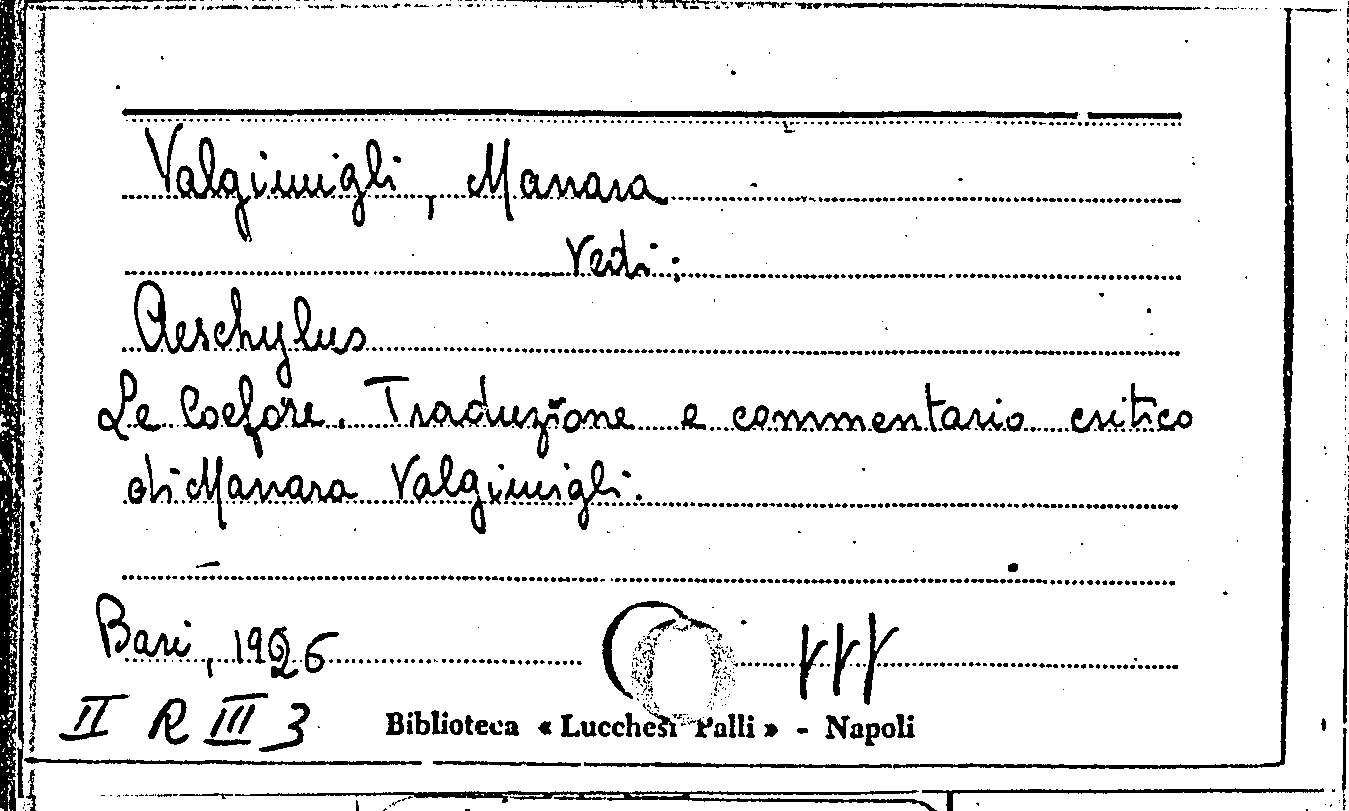 Valgimigli, Manara
Vedi:
Aeschylus
Le Coefore. Traduzione e commentario critico
di Manara Valgimigli.
Bari, 1926
II R III 3
Biblioteca « Lucchesi Palli » - Napoli